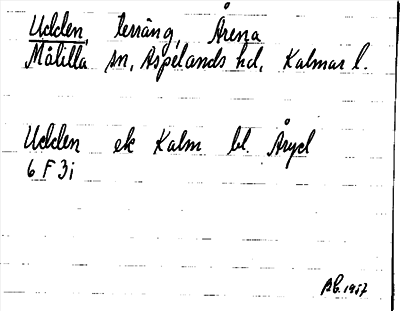 Udden, terräng, Årena
Målilla sn, Aspelands hd, Kalmar l.
Udden ek Kalm bl. Åryd
6 F 3i
AG. 1957